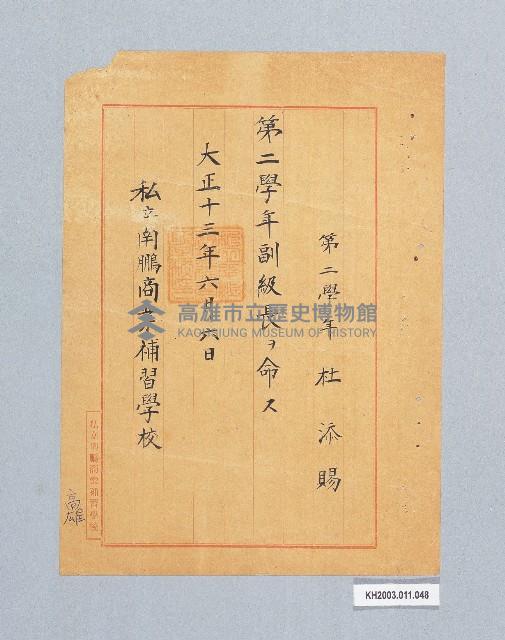 第二學年 杜添賜
第二學年副級長ヲ命ス
大正十三年六月六日
私立南鵬商業補習學校
私立南鵬商業補習學校
高雄
高雄市立歷史博物館
KAOHSIUNG MUSEUM OF HISTORY
KH2003.011.048